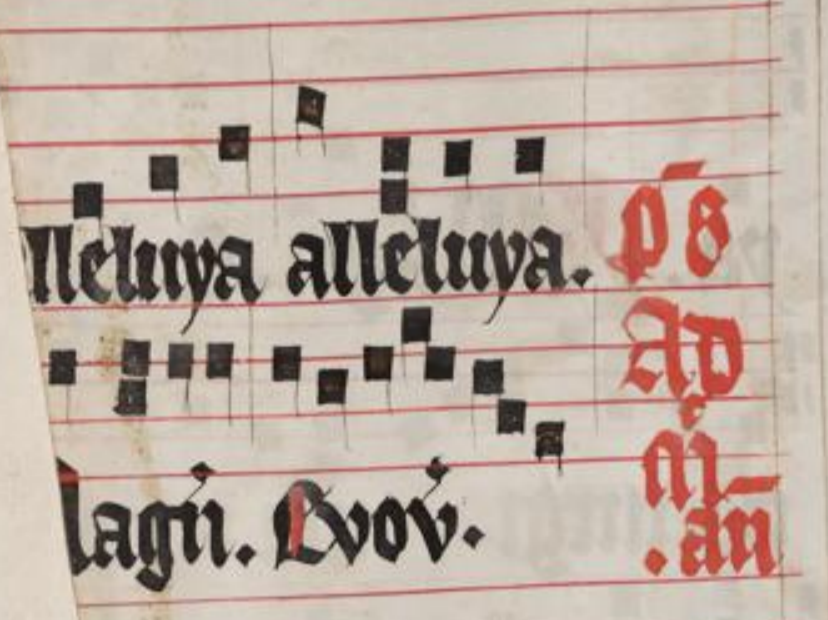 lleluya alleluya. p̄s
Ad
lagñ. Evov̄. m̄
. an̄